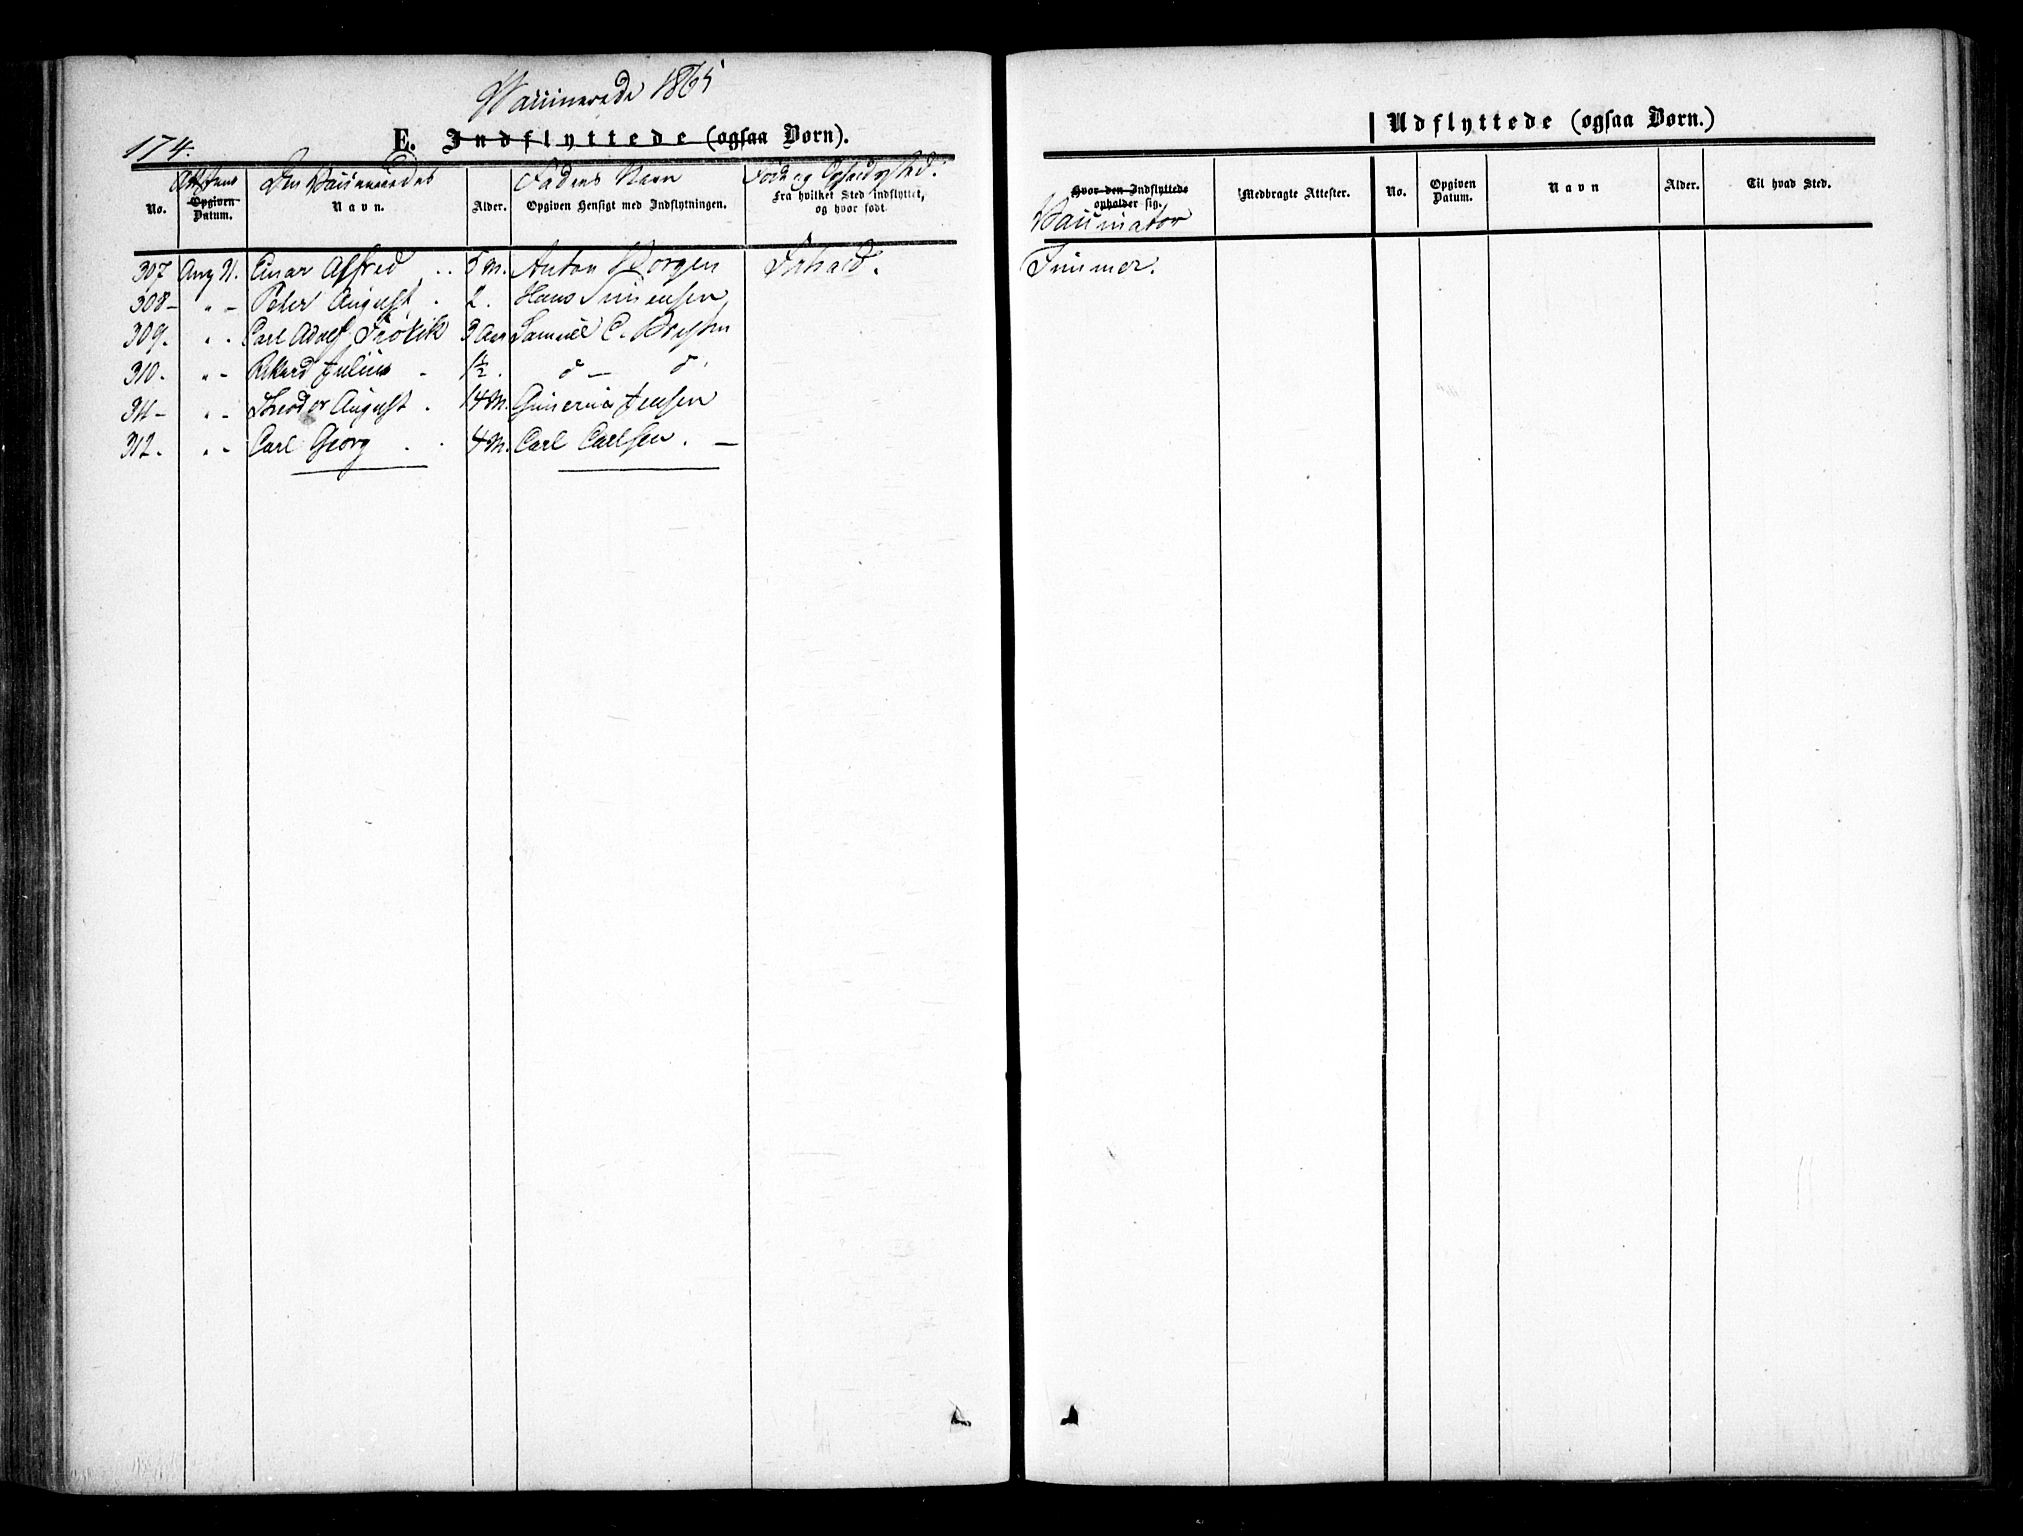 Vaccinerede 1865
174.
E. Indflyttede (ogsaa Børn).
Attestens Den Vaccineredes Faderens Navn Føde og Opholdssted.
No. Opgiven Datum. Navn. Alder. Opgiven Hensigt med Indflytningen. Fra hvilket Sted indflyttet, og hvor født.
307 Aug 21. Einar Alfred .. 5 M. Anton Borgen Ishald.
308 - " - Peter August . 2. Hans Simensen
309. " - Carl Adolf 3 Aar Samuel C.
310. " - Rikard Julius - 1½. d - d.
311 - " - Theodor August . 14 M. Jensen
312. " - Carl Georg . . 4 M. Carl Carlsen. -
Udflyttede (ogsaa Børn.)
Hvor den Indflyttede opholder sig. Medbragte Attester. No. Opgiven Datum. Navn Alder. Til hvad Sted.
Vaccinator
Timmer.